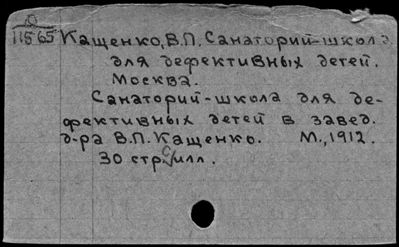 О
11565
Кащенко, В.П. Санаторий-школа
для дефективных детей.
Москва.
Санаторий-школа для де-
фективных детей в завед.
д-ра В.П. Кащенко. М., 1912.
30 стр. с илл.